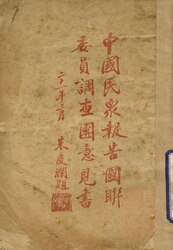 中國民衆報告國聯
委員調查團意見書
二十一年三月 朱慶瀾題